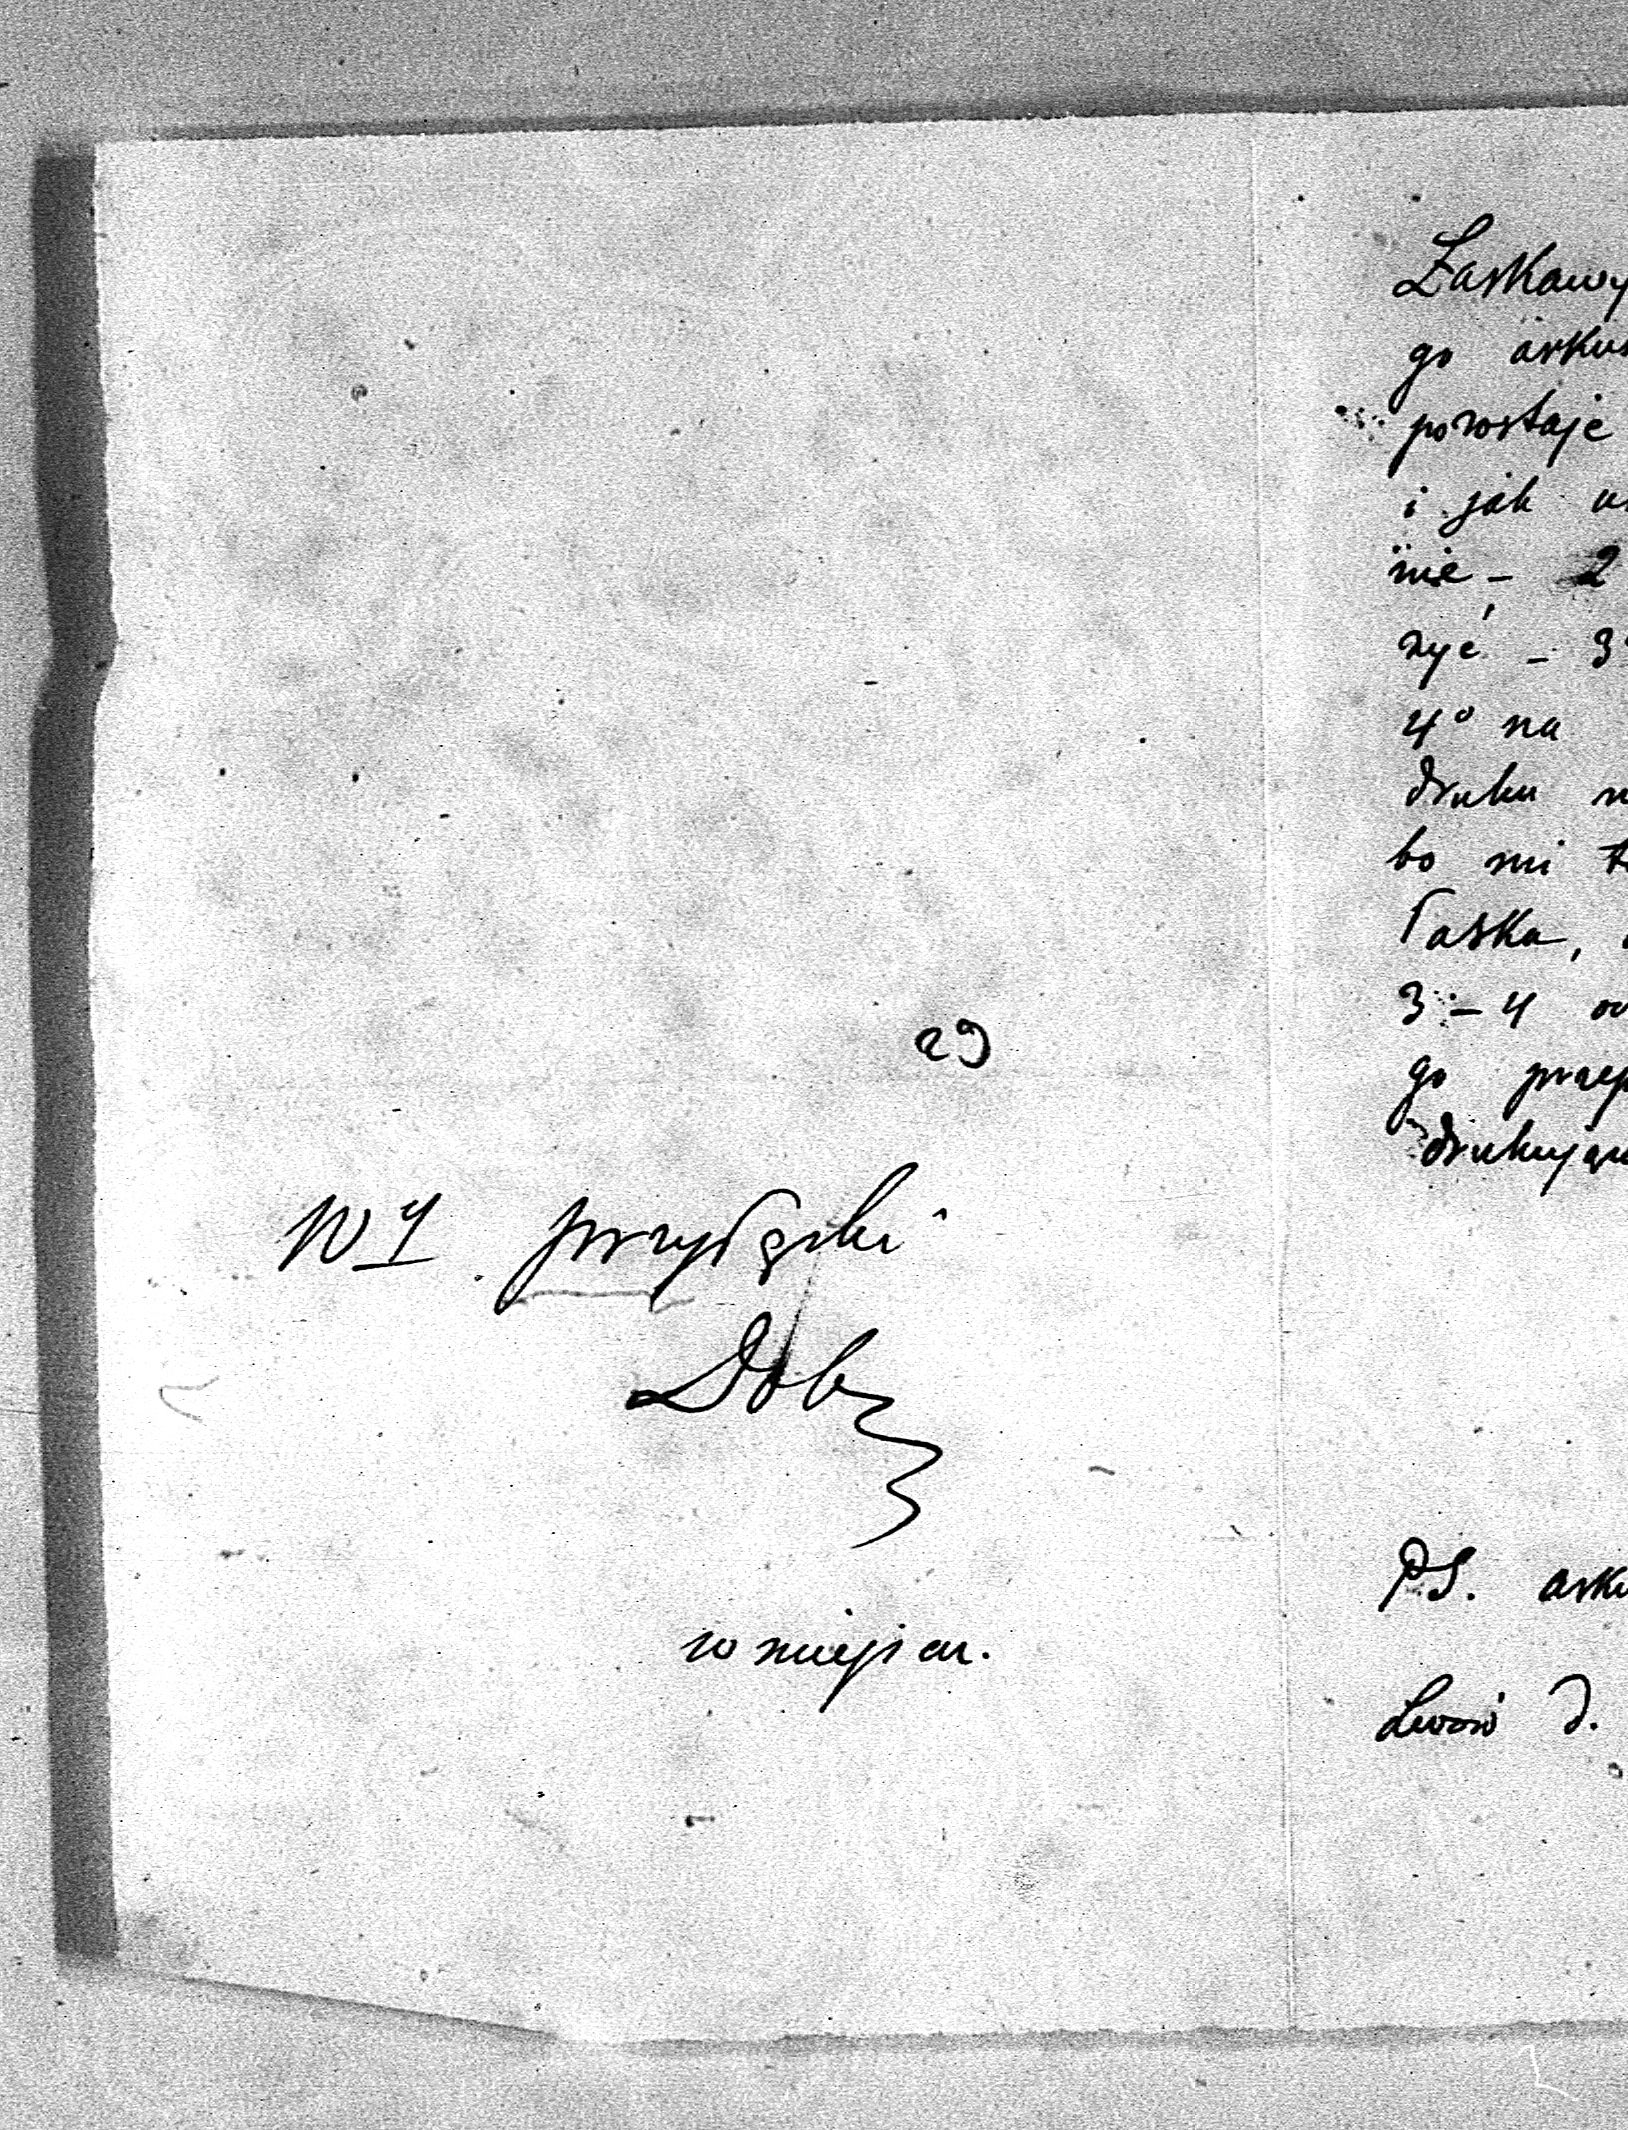 29
Wy przyłęcki
Dob
w miejscu.
Łaskawy
go arkus
pozostaje
i jak
nie - 2
zyć - 3
4° na
druku
bo mi
łaska,
3 - 4
go przep
drukując
PS. arku
Lwów d.